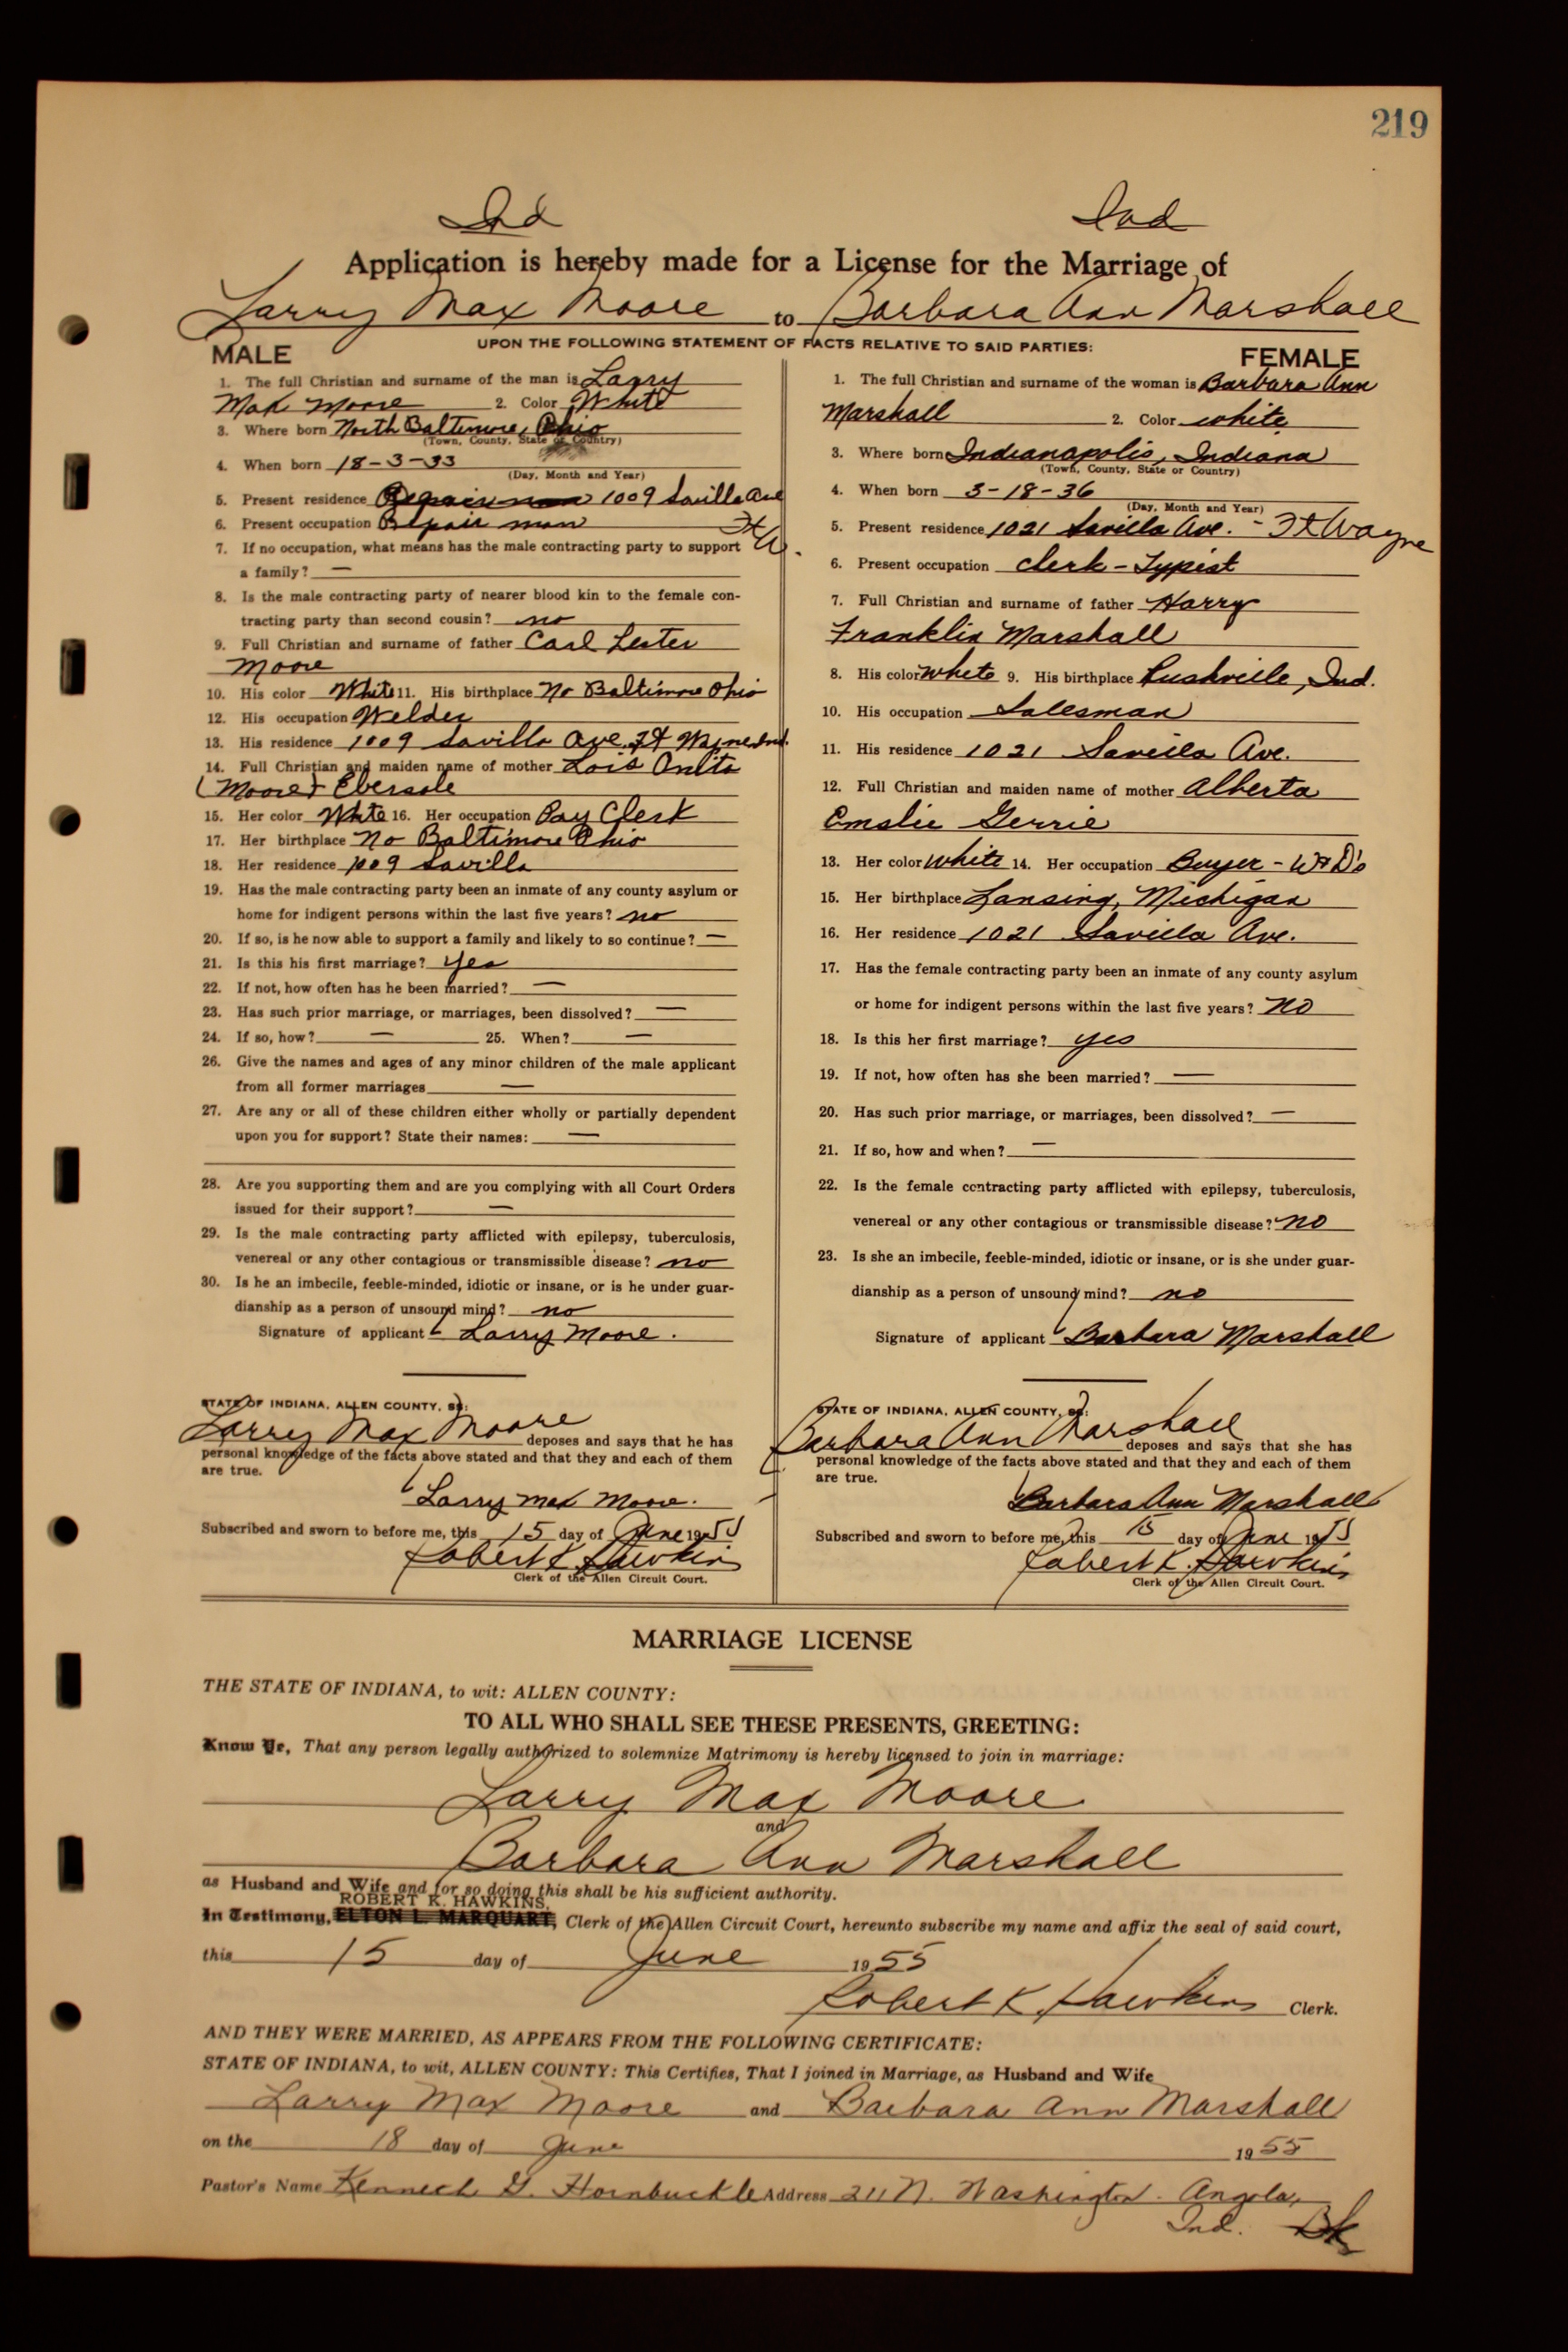 219
Ind Ind
Application is hereby made for a License for the Marriage of
Larry Max Moore to Barbara Ann Marshall
UPON THE FOLLOWING STATEMENT OF FACTS RELATIVE TO SAID PARTIES:
MALE
1. The full Christian and surname of the man is Larry
Max Moore 2. Color White
3. Where born North Baltimore, Ohio
(Town, County, State or Country)
4. When born 18-3-33
(Day, Month and Year)
5. Present residence Repairman 1009 Savilla Ave
Ft W.
6. Present occupation Repair man
7. If no occupation, what means has the male contracting party to support
a family? —
8. Is the male contracting party of nearer blood kin to the female con-
tracting party than second cousin? no
9. Full Christian and surname of father Carl Lester
Moore
10. His color White 11. His birthplace No Baltimore Ohio
12. His occupation Welder
13. His residence 1009 Savilla Ave. Ft Wayne Ind.
14. Full Christian and maiden name of mother Lois Anita
(Moore) Ebersole
15. Her color White 16. Her occupation Pay Clerk
17. Her birthplace No Baltimore Ohio
18. Her residence 1009 Savilla
19. Has the male contracting party been an inmate of any county asylum or
home for indigent persons within the last five years? no
20. If so, is he now able to support a family and likely to so continue? —
21. Is this his first marriage? yes
22. If not, how often has he been married? —
23. Has such prior marriage, or marriages, been dissolved? —
24. If so, how? — 25. When? —
26. Give the names and ages of any minor children of the male applicant
from all former marriages —
27. Are any or all of these children either wholly or partially dependent
upon you for support? State their names: —
28. Are you supporting them and are you complying with all Court Orders
issued for their support? —
29. Is the male contracting party afflicted with epilepsy, tuberculosis,
venereal or any other contagious or transmissible disease? no
30. Is he an imbecile, feeble-minded, idiotic or insane, or is he under guar-
dianship as a person of unsound mind? no
Signature of applicant Larry Moore.
STATE OF INDIANA, ALLEN COUNTY, ss:
Larry Max Moore deposes and says that he has
personal knowledge of the facts above stated and that they and each of them
are true.
Larry Max Moore.
Subscribed and sworn to before me, this 15 day of June 1955
Robert K Hawkins
Clerk of the Allen Circuit Court.
FEMALE
1. The full Christian and surname of the woman is Barbara Ann
Marshall 2. Color white
3. Where born Indianapolis, Indiana
(Town, County, State or Country)
4. When born 3-18-36
(Day, Month and Year)
5. Present residence 1021 Savilla Ave. - Ft Wayne
6. Present occupation Clerk - Typist
7. Full Christian and surname of father Harry
Franklin Marshall
8. His color white 9. His birthplace Rushville, Ind.
10. His occupation Salesman
11. His residence 1021 Savilla Ave.
12. Full Christian and maiden name of mother Alberta
Emslie Gerrie
13. Her color white 14. Her occupation Buyer - W&D's
15. Her birthplace Lansing, Michigan
16. Her residence 1021 Savilla Ave.
17. Has the female contracting party been an inmate of any county asylum
or home for indigent persons within the last five years? no
18. Is this her first marriage? yes
19. If not, how often has she been married? —
20. Has such prior marriage, or marriages, been dissolved? —
21. If so, how and when? —
22. Is the female contracting party afflicted with epilepsy, tuberculosis,
venereal or any other contagious or transmissible disease? no
23. Is she an imbecile, feeble-minded, idiotic or insane, or is she under guar-
dianship as a person of unsound mind? no
Signature of applicant Barbara Marshall
STATE OF INDIANA, ALLEN COUNTY, ss:
Barbara Ann Marshall deposes and says that she has
personal knowledge of the facts above stated and that they and each of them
are true.
Barbara Ann Marshall
Subscribed and sworn to before me, this 15 day of June 1955
Robert K. Hawkins
Clerk of the Allen Circuit Court.
MARRIAGE LICENSE
THE STATE OF INDIANA, to wit: ALLEN COUNTY:
TO ALL WHO SHALL SEE THESE PRESENTS, GREETING:
Know Ye, That any person legally authorized to solemnize Matrimony is hereby licensed to join in marriage:
Larry Max Moore
and
Barbara Ann Marshall
as Husband and Wife and for so doing this shall be his sufficient authority.
ROBERT K. HAWKINS,
In Testimony, ELTON L. MARQUART, Clerk of the Allen Circuit Court, hereunto subscribe my name and affix the seal of said court,
this 15 day of June 1955
Robert K. Hawkins Clerk.
AND THEY WERE MARRIED, AS APPEARS FROM THE FOLLOWING CERTIFICATE:
STATE OF INDIANA, to wit, ALLEN COUNTY: This Certifies, That I joined in Marriage, as Husband and Wife
Larry Max Moore and Barbara Ann Marshall
on the 18 day of June 1955
Pastor's Name Kenneth G. Hornbuckle Address 211 N. Washington. Angola,
Ind.